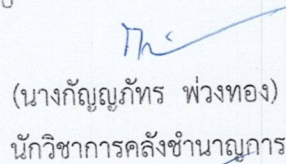 (นางกัญญภัทร พ่วงทอง)
นักวิชาการคลังชำนาญการ